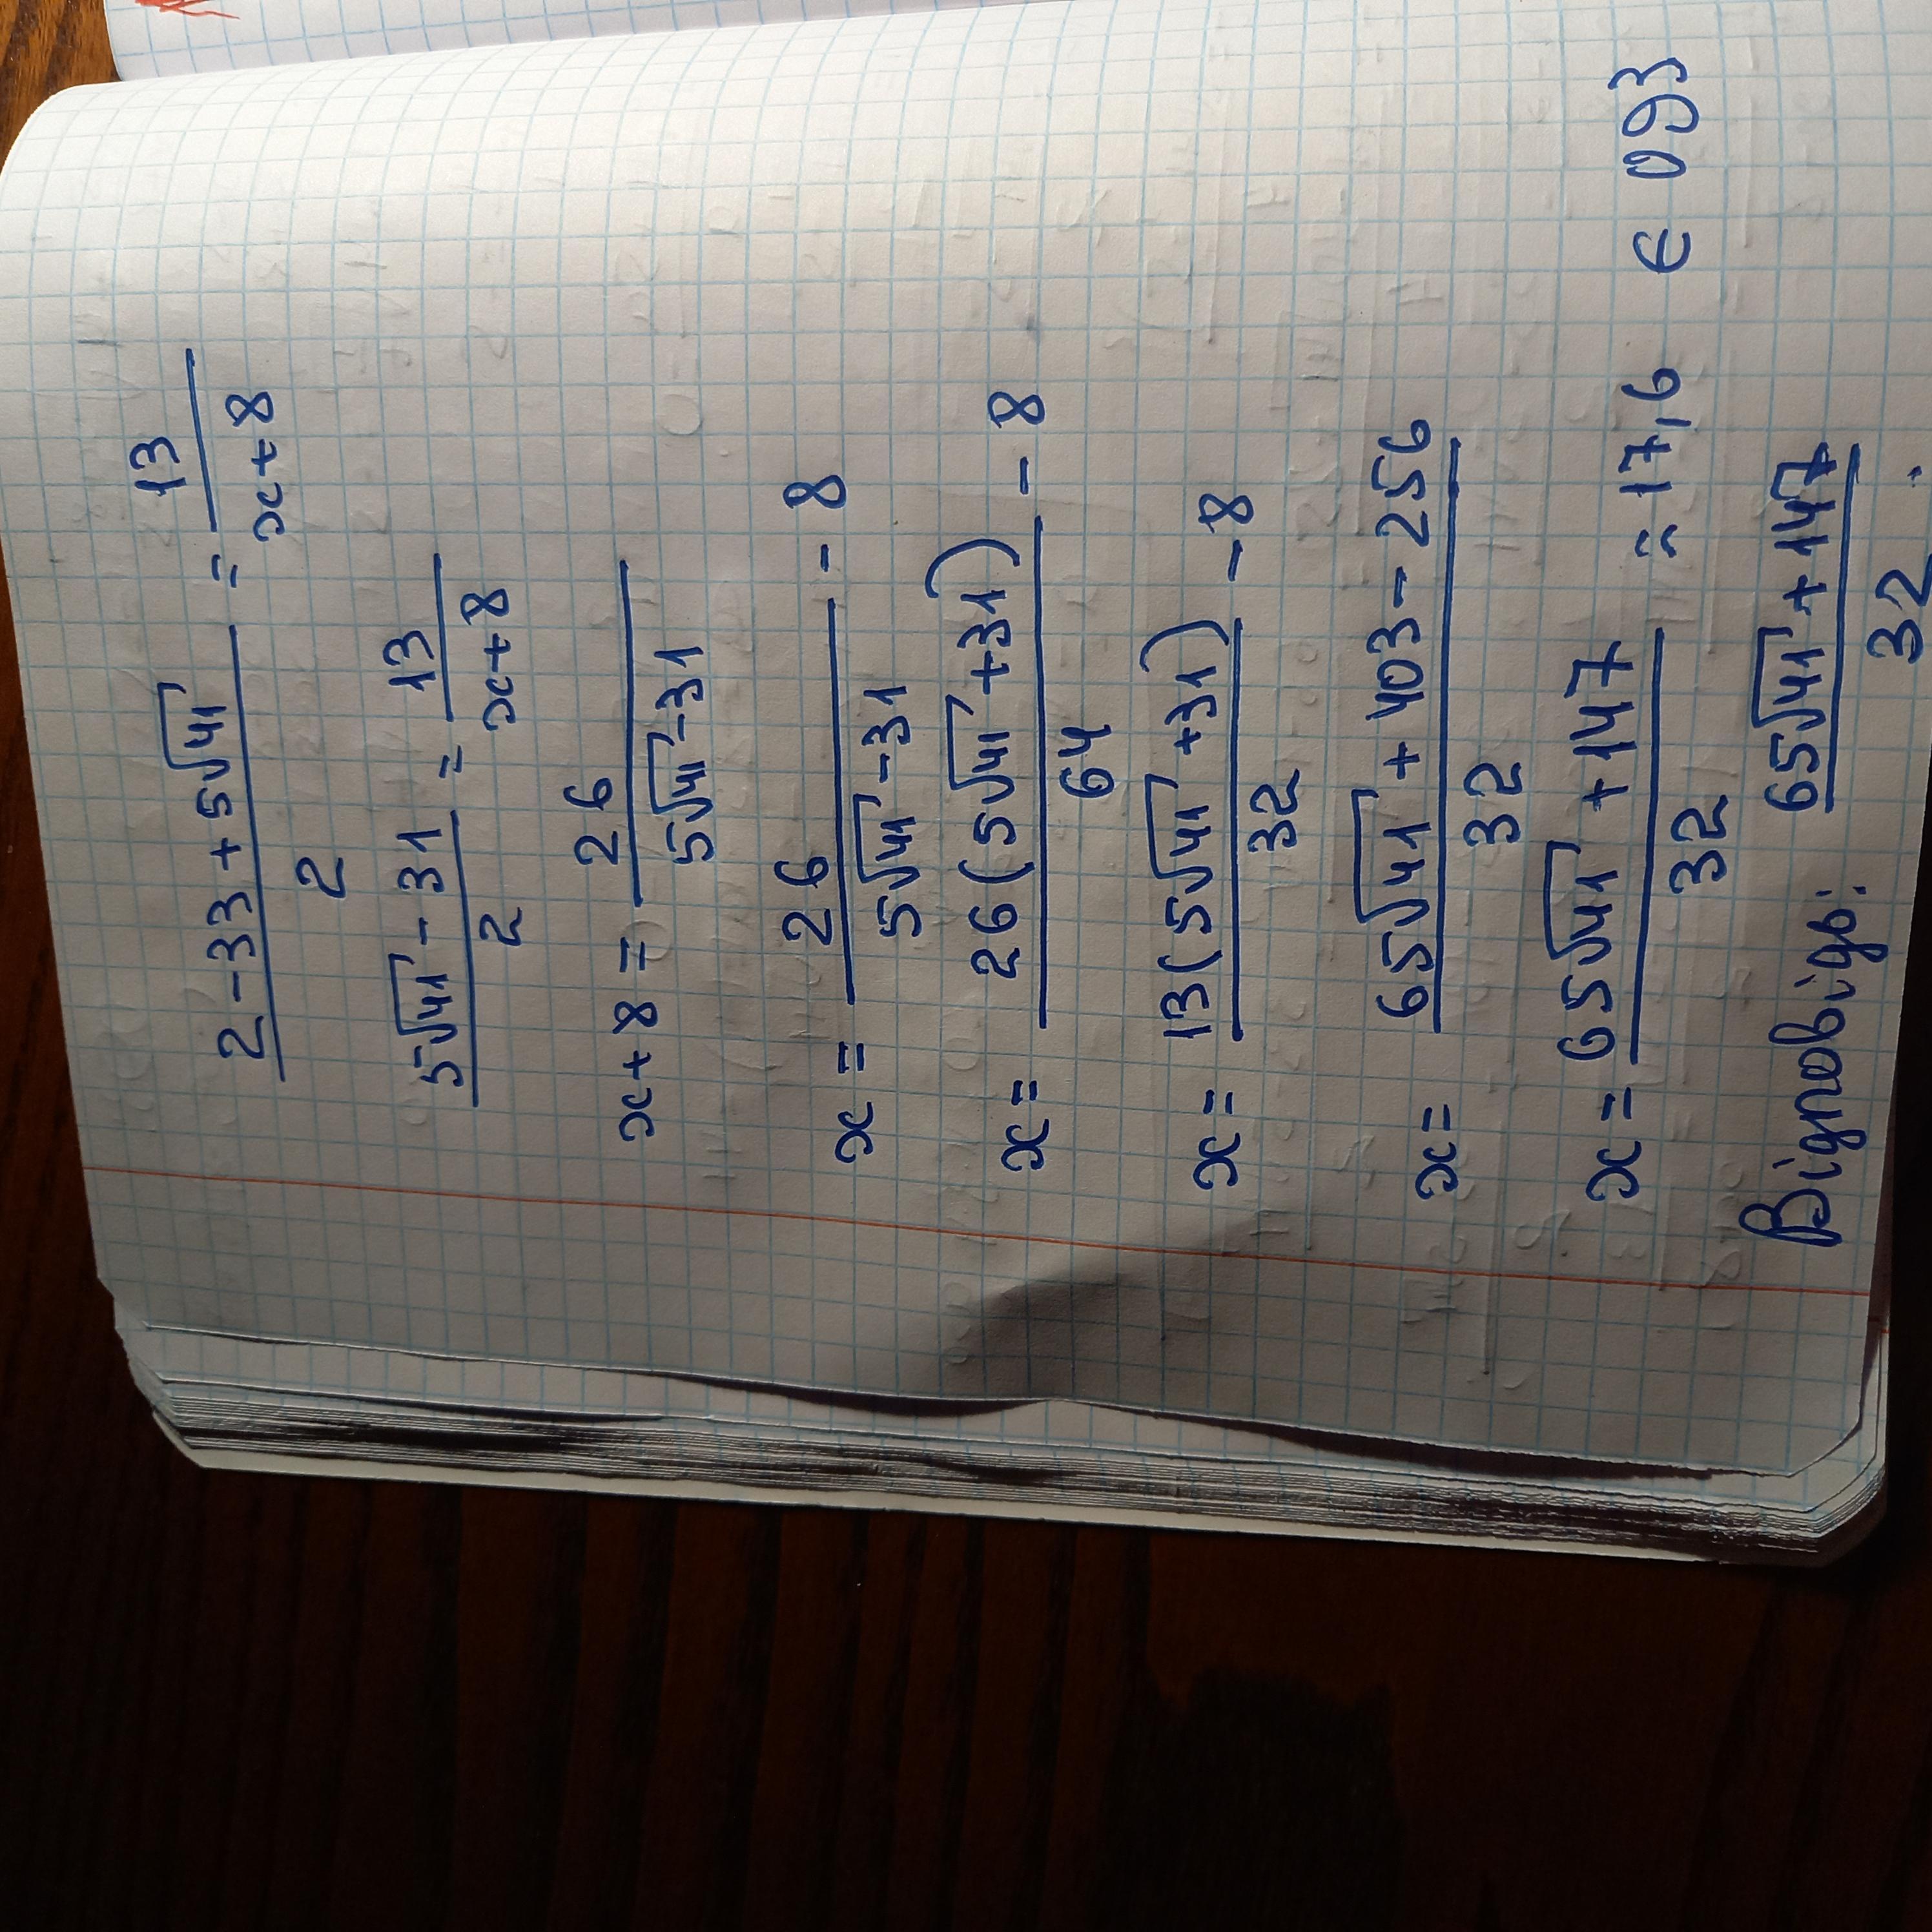 (2 - 33 + 5√41)/2 = 13/(x+8)
(5√41 - 31)/2 = 13/(x+8)
x + 8 = 26/(5√41 - 31)
x = 26/(5√41 - 31) - 8
x = 26(5√41 + 31)/64 - 8
x = 13(5√41 + 31)/32 - 8
x = (65√41 + 403 - 256)/32
x = (65√41 + 147)/32 ≈ 17,6 ∈ ОДЗ
Відповідь: (65√41 + 147)/32.